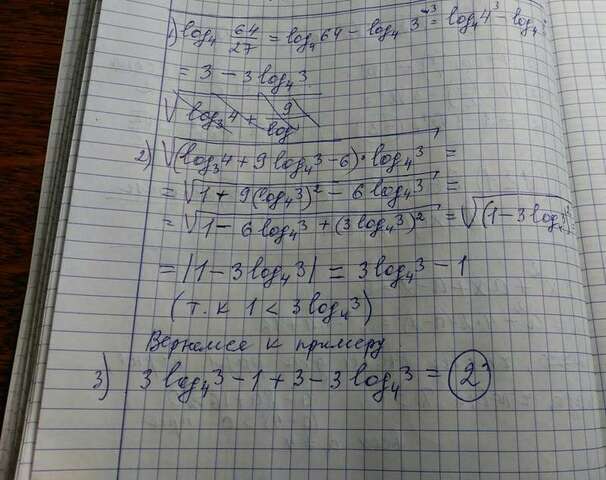 1) log₄ 64/27 = log₄ 64 - log₄ 3³ = log₄ 4³ - log₄
= 3 - 3 log₄ 3
2) √((log₃ 4 + 9 log₄ 3 - 6) · log₄ 3) =
= √(1 + 9(log₄ 3)² - 6 log₄ 3) =
= √(1 - 6 log₄ 3 + (3 log₄ 3)²) = √((1 - 3 log₄
= |1 - 3 log₄ 3| = 3 log₄ 3 - 1
(т.к 1 < 3 log₄ 3)
Вернемся к примеру
3) 3 log₄ 3 - 1 + 3 - 3 log₄ 3 = 2